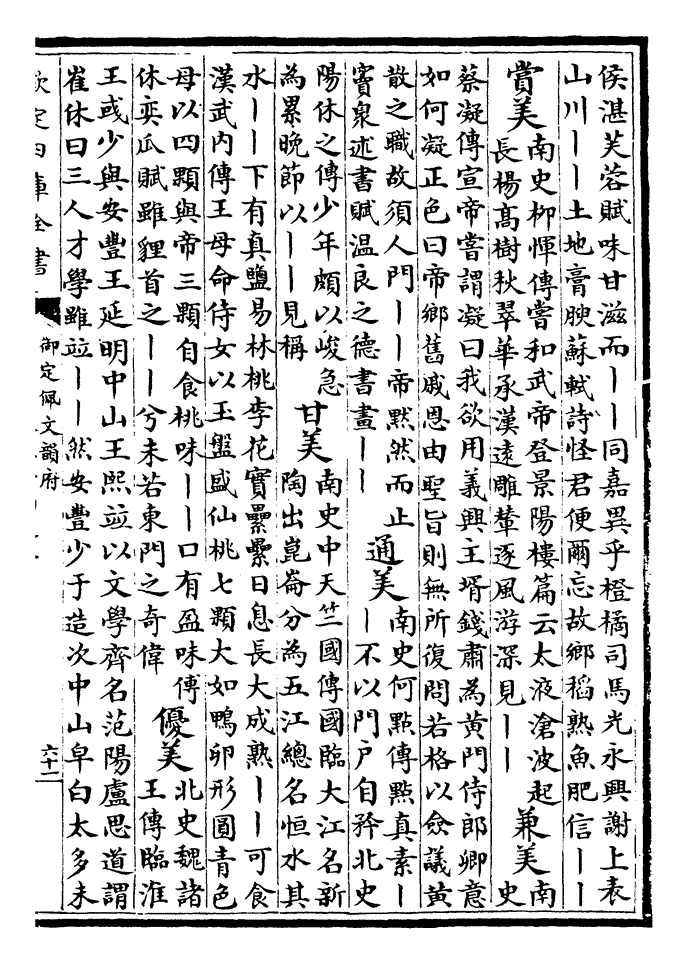 侯湛芙蓉賦味甘滋而丨丨同嘉異乎橙橘司馬光永興謝上表
山川丨丨土地膏腴蘇軾詩怪君便爾忘故鄉稻熟魚肥信丨丨
賞美
南史柳惲傳嘗和武帝登景陽樓篇云太液滄波起
長楊高樹秋翠華承漢遠雕輦逐風游深見丨丨
兼美
南
史
蔡凝傳宣帝嘗謂凝曰我欲用義興主壻錢肅為黃門侍郎卿意
如何凝正色曰帝鄉舊戚恩由聖旨則無所復問若格以僉議黃
散之職故須人門丨丨帝默然而止
竇臮述書賦溫良之德書畫丨丨
通美
南史何點傳點真素丨
丨不以門戶自矜北史
陽休之傳少年頗以峻急
為累晚節以丨丨見稱
甘美
南史中天竺國傳國臨大江名新
陶出崑崙分為五江總名恒水其
水丨丨下有真鹽易林桃李花實纍纍日息長大成熟丨丨可食
漢武內傳王母命侍女以玉盤盛仙桃七顆大如鴨卵形圓青色
母以四顆與帝三顆自食桃味丨丨口有盈味傳
休奕瓜賦雖貍首之丨丨兮未若東門之奇偉
優美
北史魏諸
王傳臨淮
王彧少與安豐王延明中山王熙竝以文學齊名范陽盧思道謂
崔休曰三人才學雖竝丨丨然安豐少于造次中山皁白太多未
欽定四庫全書
御定佩文韻府
六十二